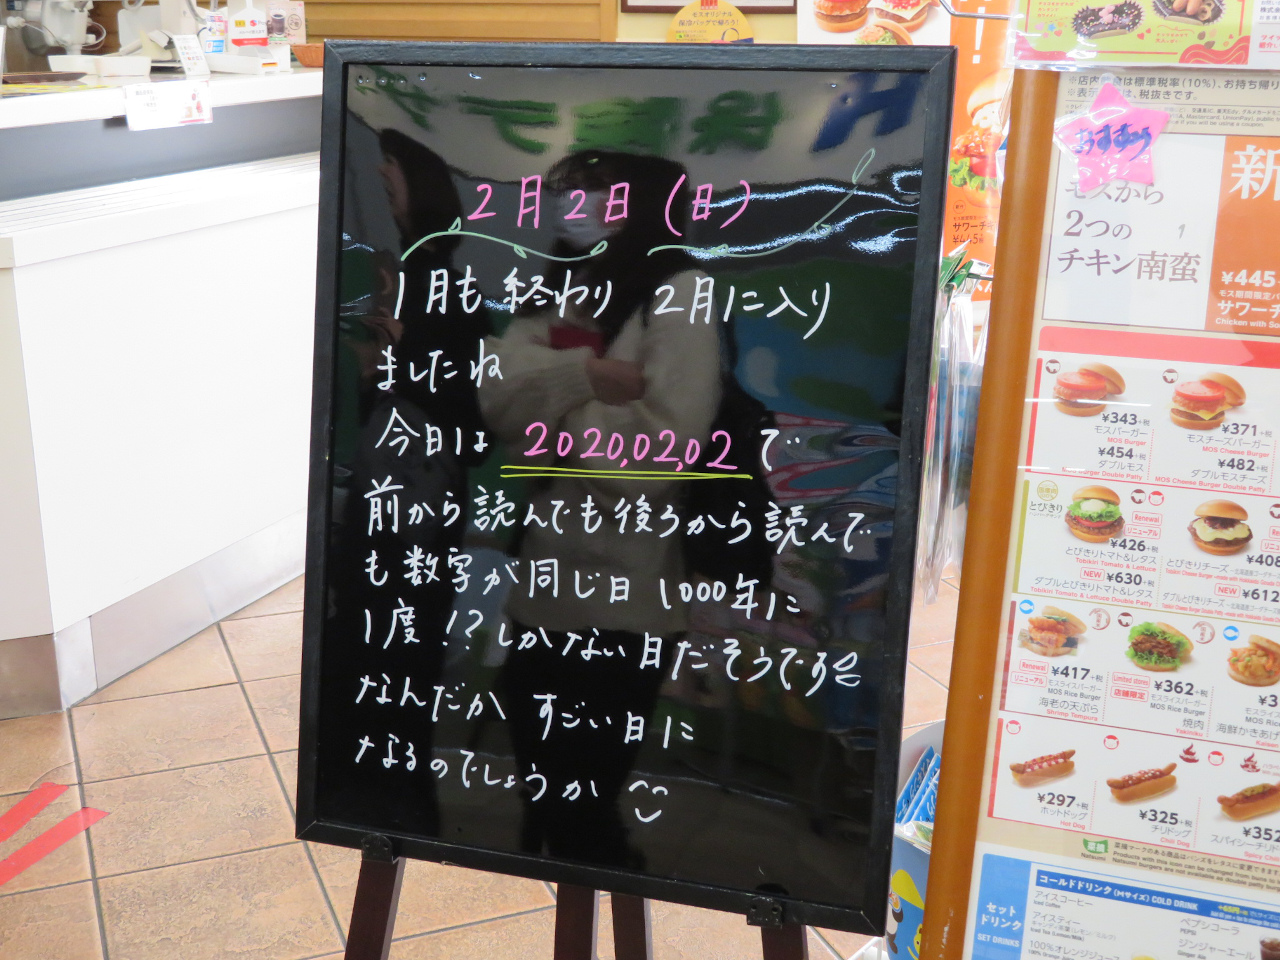 2月2日(日)
1月も終わり 2月に入り
ましたね
今日は 2020,02,02 で
前から読んでも後ろから読んで
も数字が同じ日 1000年に
1度!?しかない日だそうです
なんだか すごい日に
なるのでしょうか
モスオリジナル
保冷バッグで帰ろう!
※店内飲食は標準税率(10%)、お持ち帰り
※表示価格は、税抜きです。
おすすめ
新
モスから
2つの
チキン南蛮
¥445
モス期間限定バ
サワーチ
Chicken with So
サワーチキ
¥445
¥343+税
モスバーガー
MOS Burger
¥454+税
ダブルモス
Burger Double Patty
¥371+税
モスチーズバーガー
MOS Cheese Burger
¥482+税
ダブルモスチーズ
MOS Cheese Burger Double Patty
とびきり
Renewal
リニューアル
¥426+税
とびきりトマト&レタス
Tobikiri Tomato & Lettuce
NEW ¥630+税
ダブルとびきりトマト&レタス
Tobikiri Tomato & Lettuce Double Patty
¥408
とびきりチーズ
NEW ¥612
ダブルとびきりチーズ
Renewal
リニューアル
¥417+税
モスライスバーガー
MOS Rice Burger
海老の天ぷら
Shrimp Tempura
Limited stores
店舗限定
¥362+税
モスライスバーガー
MOS Rice Burger
焼肉
Yakiniku
¥3
モスライ
MOS R
海鮮かきあげ
Kaisen
¥297+税
ホットドッグ
Hot Dog
¥325+税
チリドッグ
Chili Dog
¥352
スパイシーチリド
菜摘
Natsumi
菜摘マークのある商品はバンズをレタスに変更できます
Products with this icon can be changed from buns to
Natsumi burgers are not available as double patty bur
セット
ドリンク
SET DRINKS
コールドドリンク(Mサイズ) COLD DRINK
アイスコーヒー
Iced Coffee
アイスティー
Iced Tea (Lemon/Milk)
100%オレンジジュース
ペプシコーラ
PEPSI
ジンジャーエール
Ginger Ale